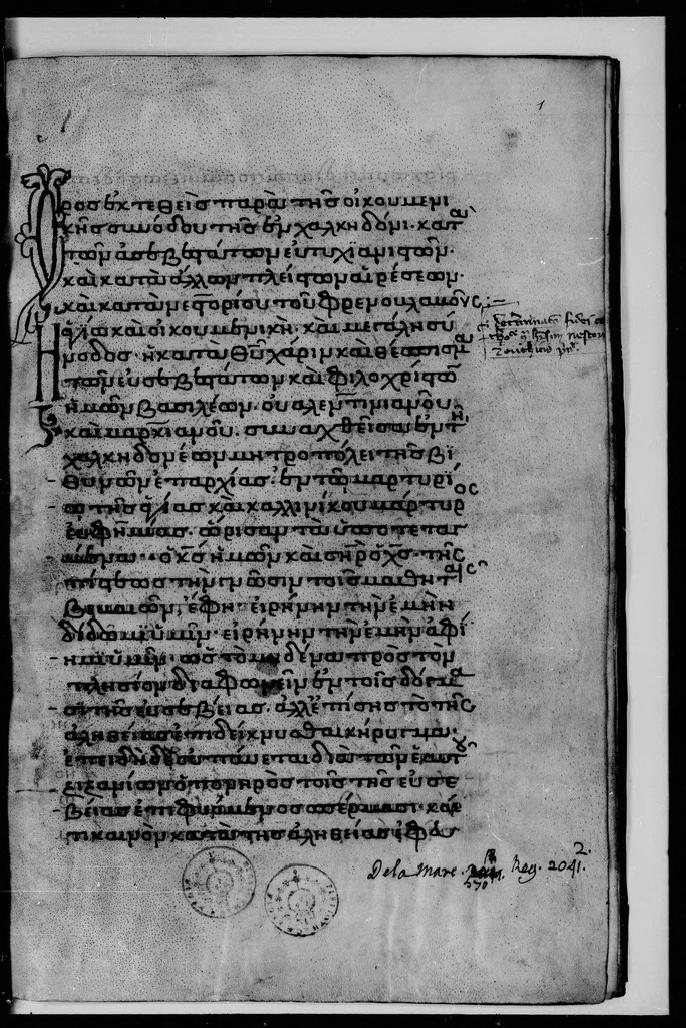 1
Ὅρος ἐκτεθεὶς παρὰ τῆς οἰκουμενι
κῆς συνόδου τῆς ἐν χαλκηδόνι· κατὰ
τῶν ἀσεβεστάτων εὐτυχιανιστῶν·
καὶ κατὰ ἄλλων πλείστων αἱρέσεων·
καὶ κατὰ νεστορίου τοῦ φρενοβλαβοῦς
Ἡ ἁγία καὶ οἰκουμενικὴ καὶ μεγάλη σύ
νοδος· ἡ κατὰ θῦ χάριν καὶ θέσπισμα
τῶν εὐσεβεστάτων καὶ φιλοχρίστων
ἡμῶν βασιλέων· οὐαλεντινιανοῦ
καὶ μαρκιανοῦ· συναχθεῖσα ἐν τῇ
χαλκηδονέων μητροπόλει τῆς βι
θυνῶν ἐπαρχίας· ἐν τῷ μαρτυρί
ω τῆς ἁγίας καὶ καλλινίκου μάρτυρος
εὐφημίας· ὥρισαν τὰ ὑποτεταγ
μένα· ὁ κς ἡμῶν καὶ σηρ ὁ χς· τῆς
πίστεως τὴν γνῶσιν τοῖς μαθηταῖς
βεβαιῶν, ἔφη· εἰρήνην τὴν ἐμὴν
δίδωμι ὑμῖν· εἰρήνην τὴν ἐμὴν ἀφί
ημι ὑμῖν· ὥστε μηδένα πρὸς τὸν
πλησίον διαφωνεῖν ἐν τοῖς δόγμα
σι τῆς εὐσεβείας· ἀλλ' ἐπίσης τὸ τῆς
ἀληθείας ἐπιδείκνυσθαι κήρυγμα·
ἐπειδὴ δὲ οὐ παύεται διὰ τῶν ἑαυτοῦ
ζιζανίων ὁ πονηρὸς τοῖς τῆς εὐσε
βείας ἐπιφυόμενος σπέρμασι· καί
τι καινὸν κατὰ τῆς ἀληθείας ἐφευ
De la Mare. 270. Reg. 2041. 2.